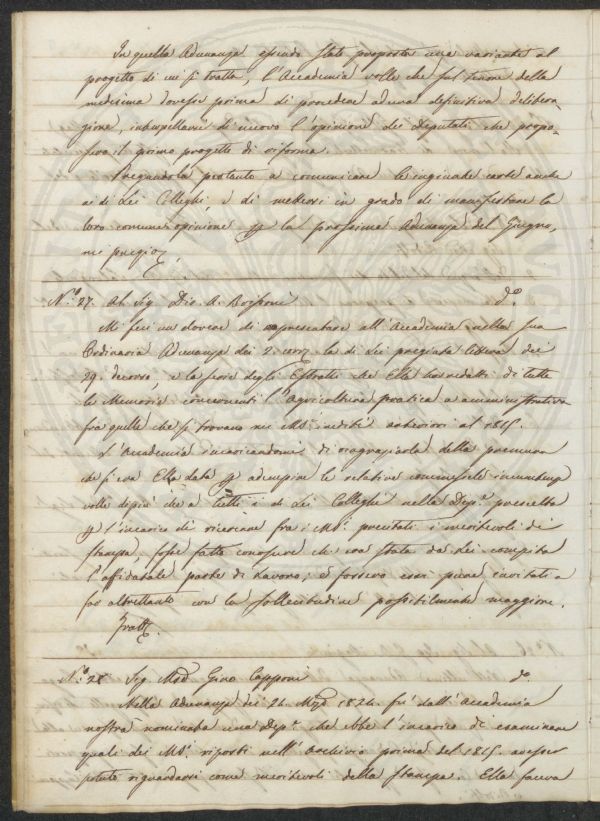 In quella Adunanza essendo stata proposta una variante al
progetto di cui si tratta, l'Accademia volle che sul tenore della
medesima dovessi prima di procedere ad una definitiva delibera-
zione, interpellare di nuovo l'opinione dei Deputati che propo-
sero il primo progetto di riforma.
Pregandola pertanto a comunicare le ingiunte carte anche
ai di Lei Colleghi, e di mettersi in grado di manifestare la
loro comune opinione la prossima Adunanza del Giugno,
mi pregio
N.º 27. Al Sig. Dro. A. d.º
Mi feci un dovere di rapresentare all'Accademia nella sua
Ordinaria Adunanza dei 2. corr. la di Lei pregiata lettera dei
29. decorso, e la serie degli Estratti che Ella ha redatti di tutte
le Memorie concernenti l'Agricoltura pratica e amministrativa
fra quelle che si trovano nei MS. inediti anteriori al 1815.
L'Accademia incaricandomi di ringraziarla della premura
che si era Ella data adempire le relative incumbenze
volle di più che a tutti i di Lei Colleghi nella Dep.e prescelta
l'incarico di ricercare fra i MS. precitati i meritevoli di
stampa, fosse fatto conoscere che era stata da Lei compita
l'affidatale parte di Lavoro, e fossero essi pure invitati a
far altrettanto con la sollecitudine possibilmente maggiore.
N.º 28 Sig. Mse Gino Capponi d.º
Nella Adunanza dei 24. 1824. fu dall'Accademia
nostra nominata una Dep.e che ebbe l'incarico di esaminare
quali dei MS. riposti nell'Archivio prima del 1815. avesser
potuto riguardarsi come meritevoli della stampa. Ella faceva